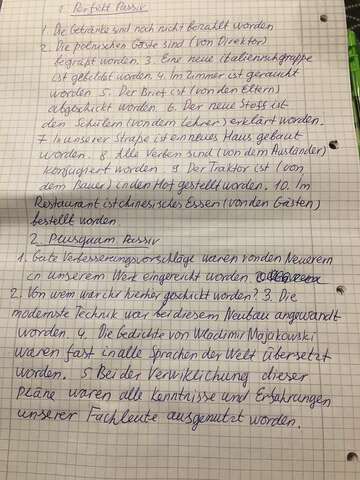 1. Perfekt Passiv
1. Die Getränke sind noch nicht bezahlt worden
2. Die polnischen Gäste sind (von Direktor)
begrüßt worden. 3. Eine neue Italienischgruppe
ist gebildet worden. 4. Im Zimmer ist geraucht
worden 5. Der Brief ist (von den Eltern)
abgeschickt worden. 6. Der neue Stoff ist
den Schülern (von dem Lehrer) erklärt worden.
7. In unserer Straße ist ein neues Haus gebaut
worden. 8. Alle Verben sind (von dem Ausländer)
konjugiert worden. 9 Der Traktor ist (von
dem Bauer) in den Hof gestellt worden. 10. Im
Restaurant ist chinesisches Essen (von den Gästen)
bestellt worden.
2 Plusquam Passiv
1. Gute Verbesserungsvorschläge waren von den Neuerern
in unserem Werk eingereicht worden.
2. Von wem war ihr hierher geschickt worden? 3. Die
modernste Technik war bei diesem Neubau angewandt
worden. 4. Die Gedichte von Wladimir Majakowski
waren fast in alle Sprachen der Welt übersetzt
worden. 5 Bei der Verwiklichung dieser
pläne waren alle Kenntnisse und Erfahrungen
unserer Fachleute ausgenutzt worden.